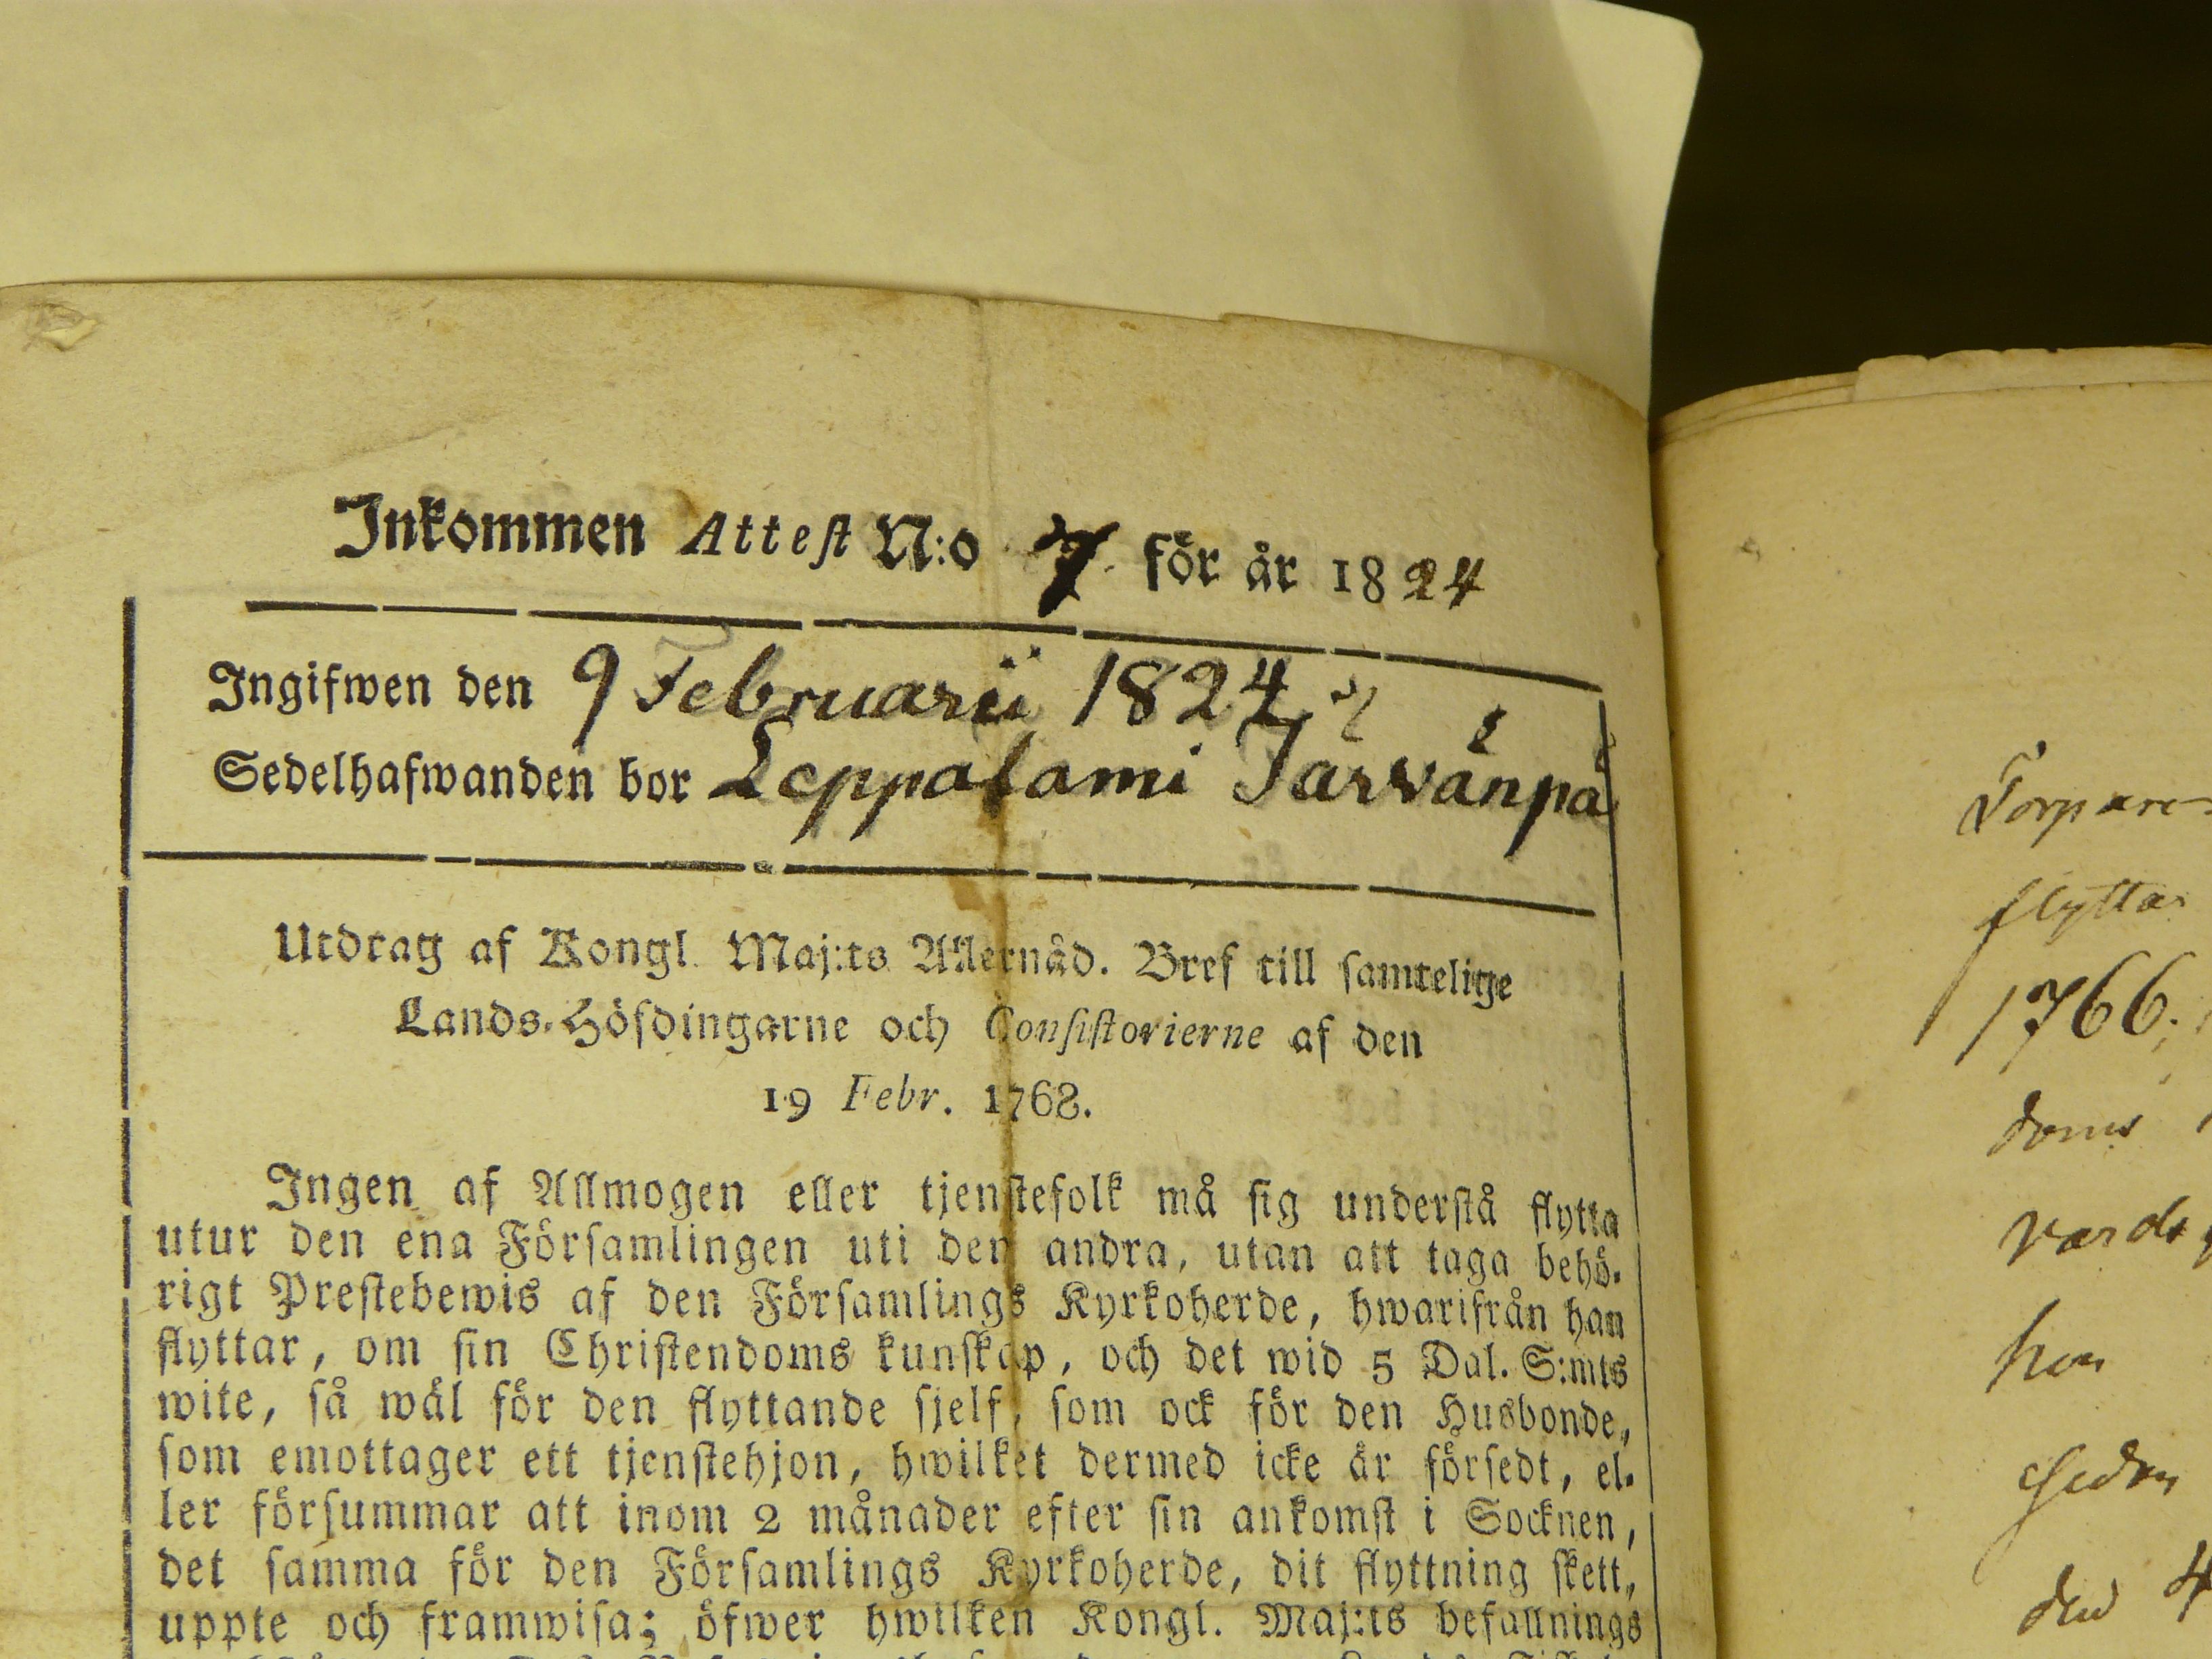 Inkommen Attest N:o 7 för år 1824
Ingifwen den 9 Februarii 1824
Sedelhafwanden bor Leppalami Järvänpä
Utdrag af Kongl. Maj:ts Allernåd. Bref till samtelige
Lands-Höfdingarne och Consistorierne af den
19 Febr. 1768.
Ingen af Allmogen eller tjenstefolk må sig understå flytta
utur den ena Församlingen uti den andra, utan att taga behö-
rigt Prestebewis af den Församlings Kyrkoherde, hwarifrån han
flyttar, om sin Christendoms kunskap, och det wid 5 Dal. S:mts
wite, så wäl för den flyttande sjelf, som ock för den Husbonde,
som emottager ett tjenstehjon, hwilket dermed icke är försedt, el-
ler försummar att inom 2 månader efter sin ankomst i Socknen,
det samma för den Församlings Kyrkoherde, dit flyttning skett,
uppte och framwisa; öfwer hwilken Kongl. Maj:ts befallnings
Torpare
flyttar
1766.
doms
hon
den 4